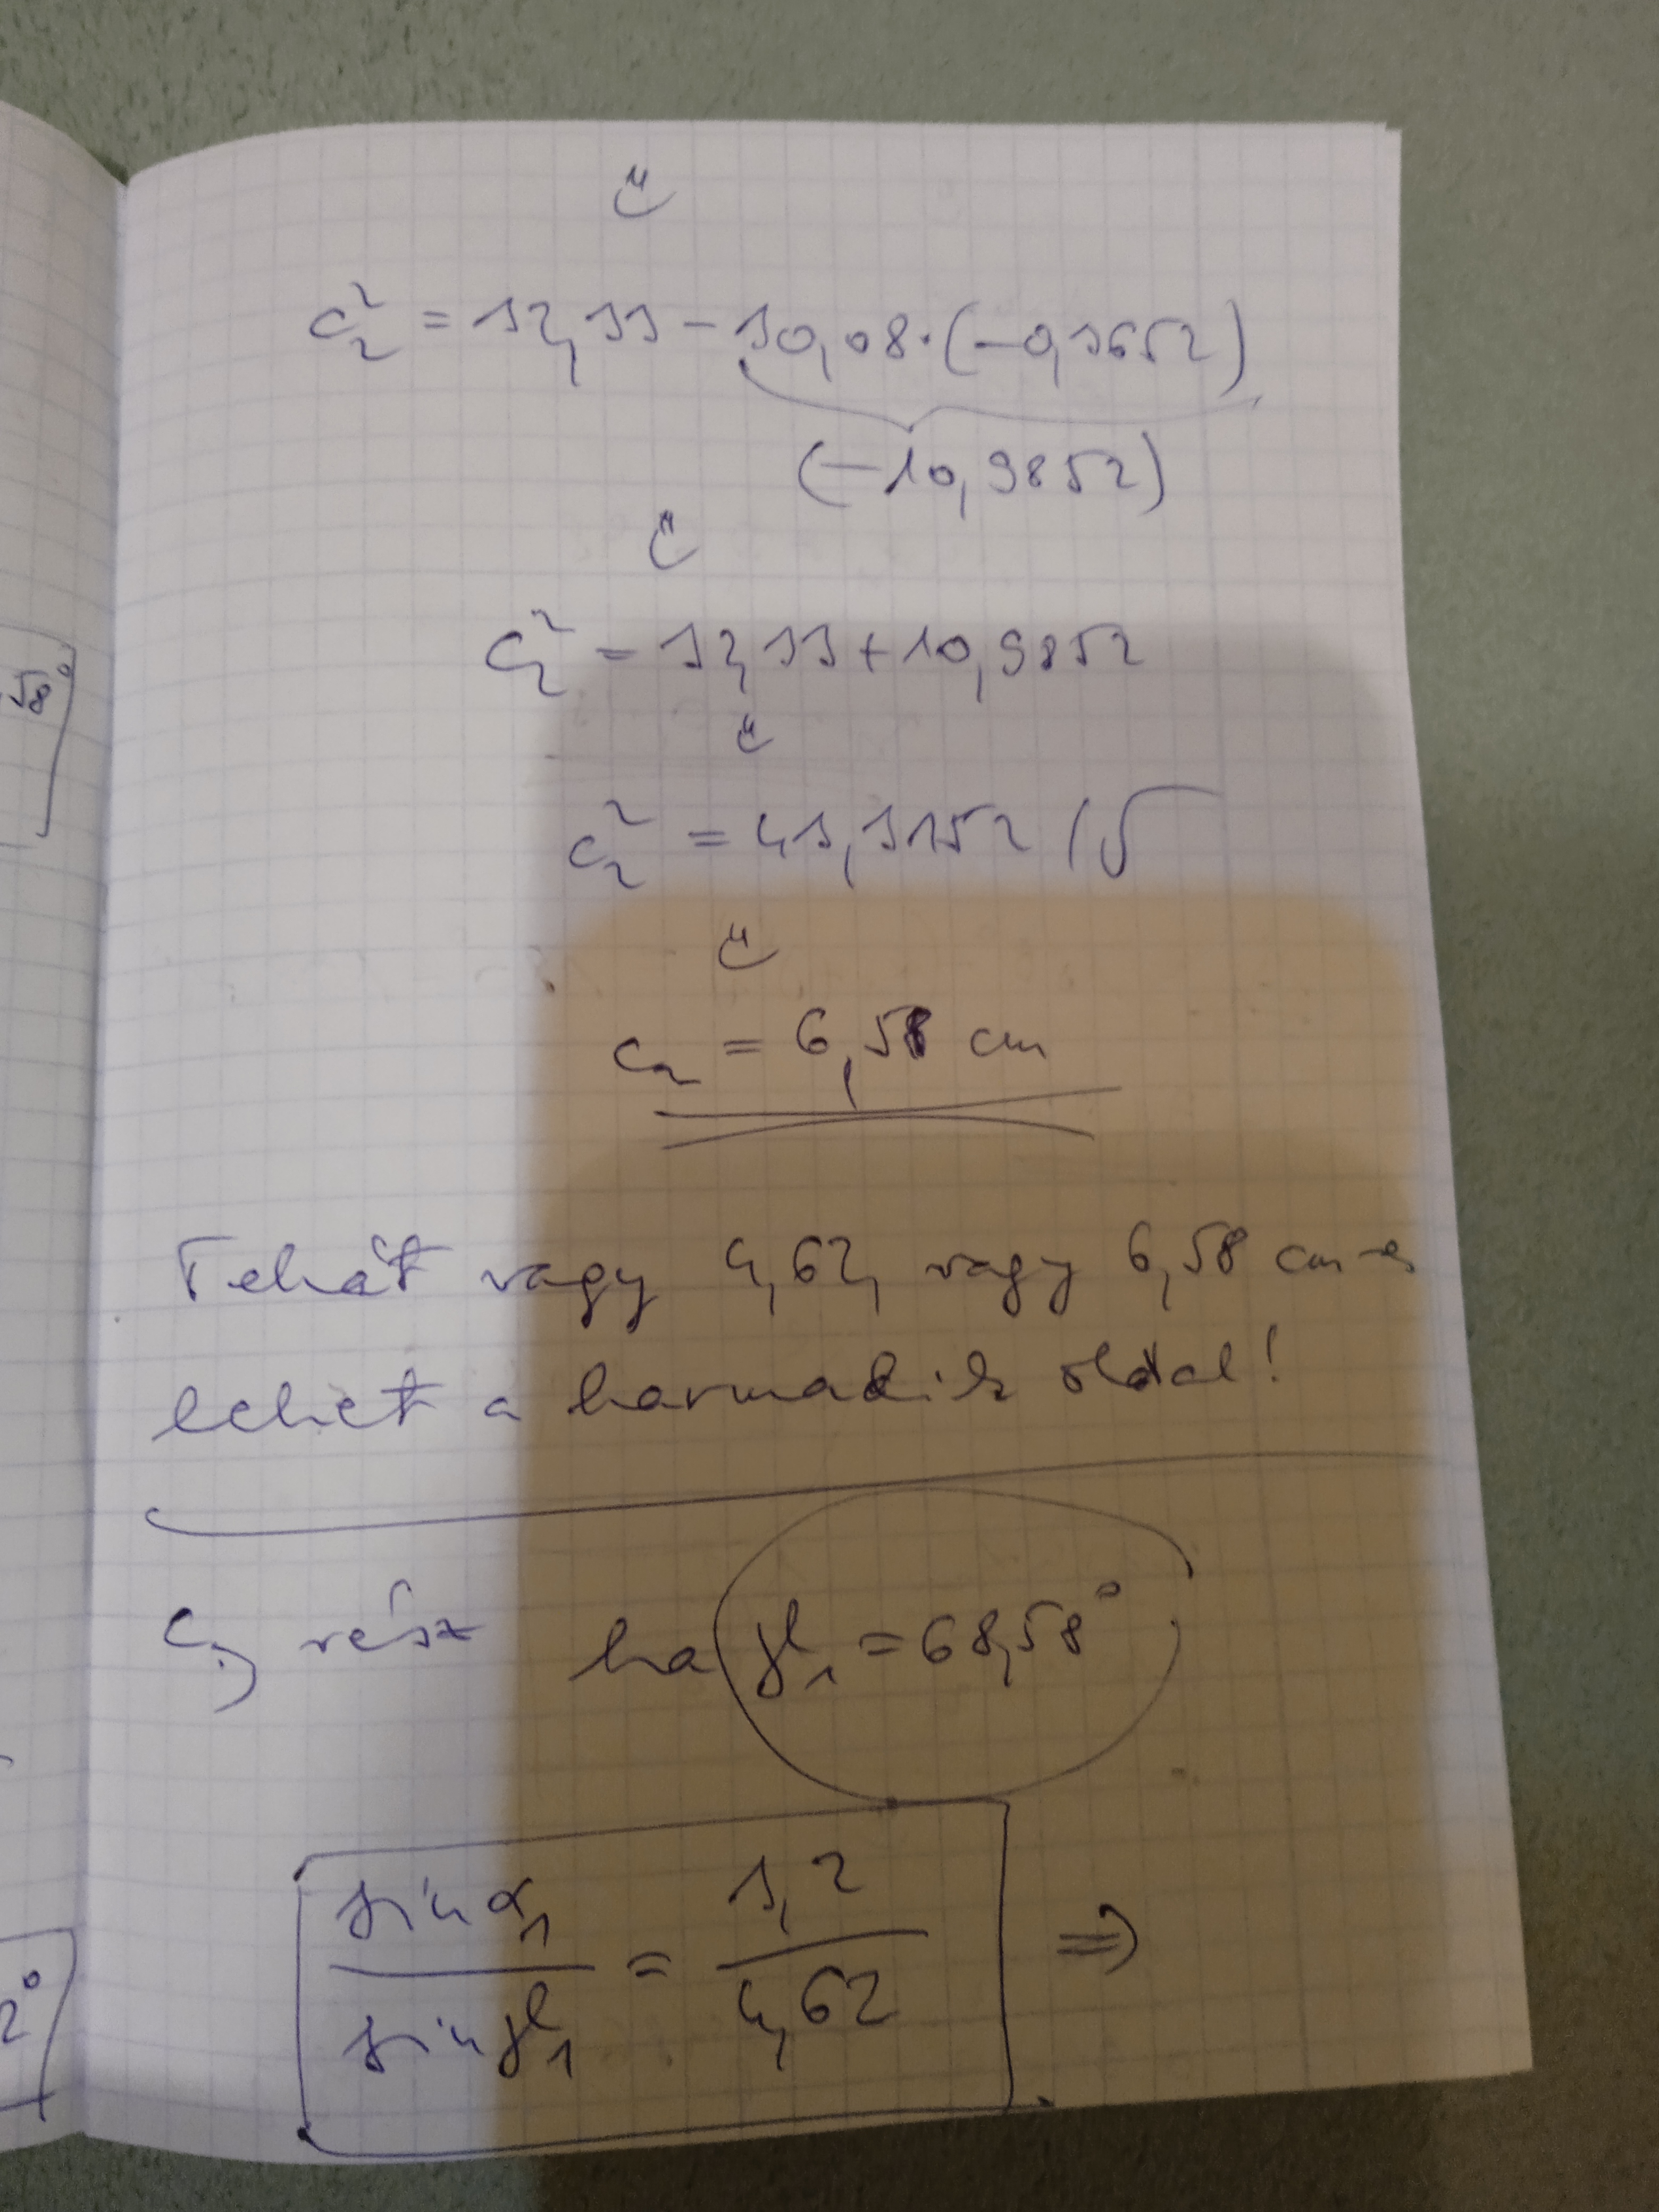 c₂² = 32,33 - 30,08·(-0,3652)
(-10,9852)
c₂² = 32,33 + 10,9852
58°
c₂² = 43,3152 /√
c₂ = 6,58 cm
Tehát vagy 4,62, vagy 6,58 cm-es
lehet a harmadik oldal!
c,) rész ha γ₁ = 68,58°
sin α₁ / sin γ₁ = 3,2 / 4,62 ⇒
2°